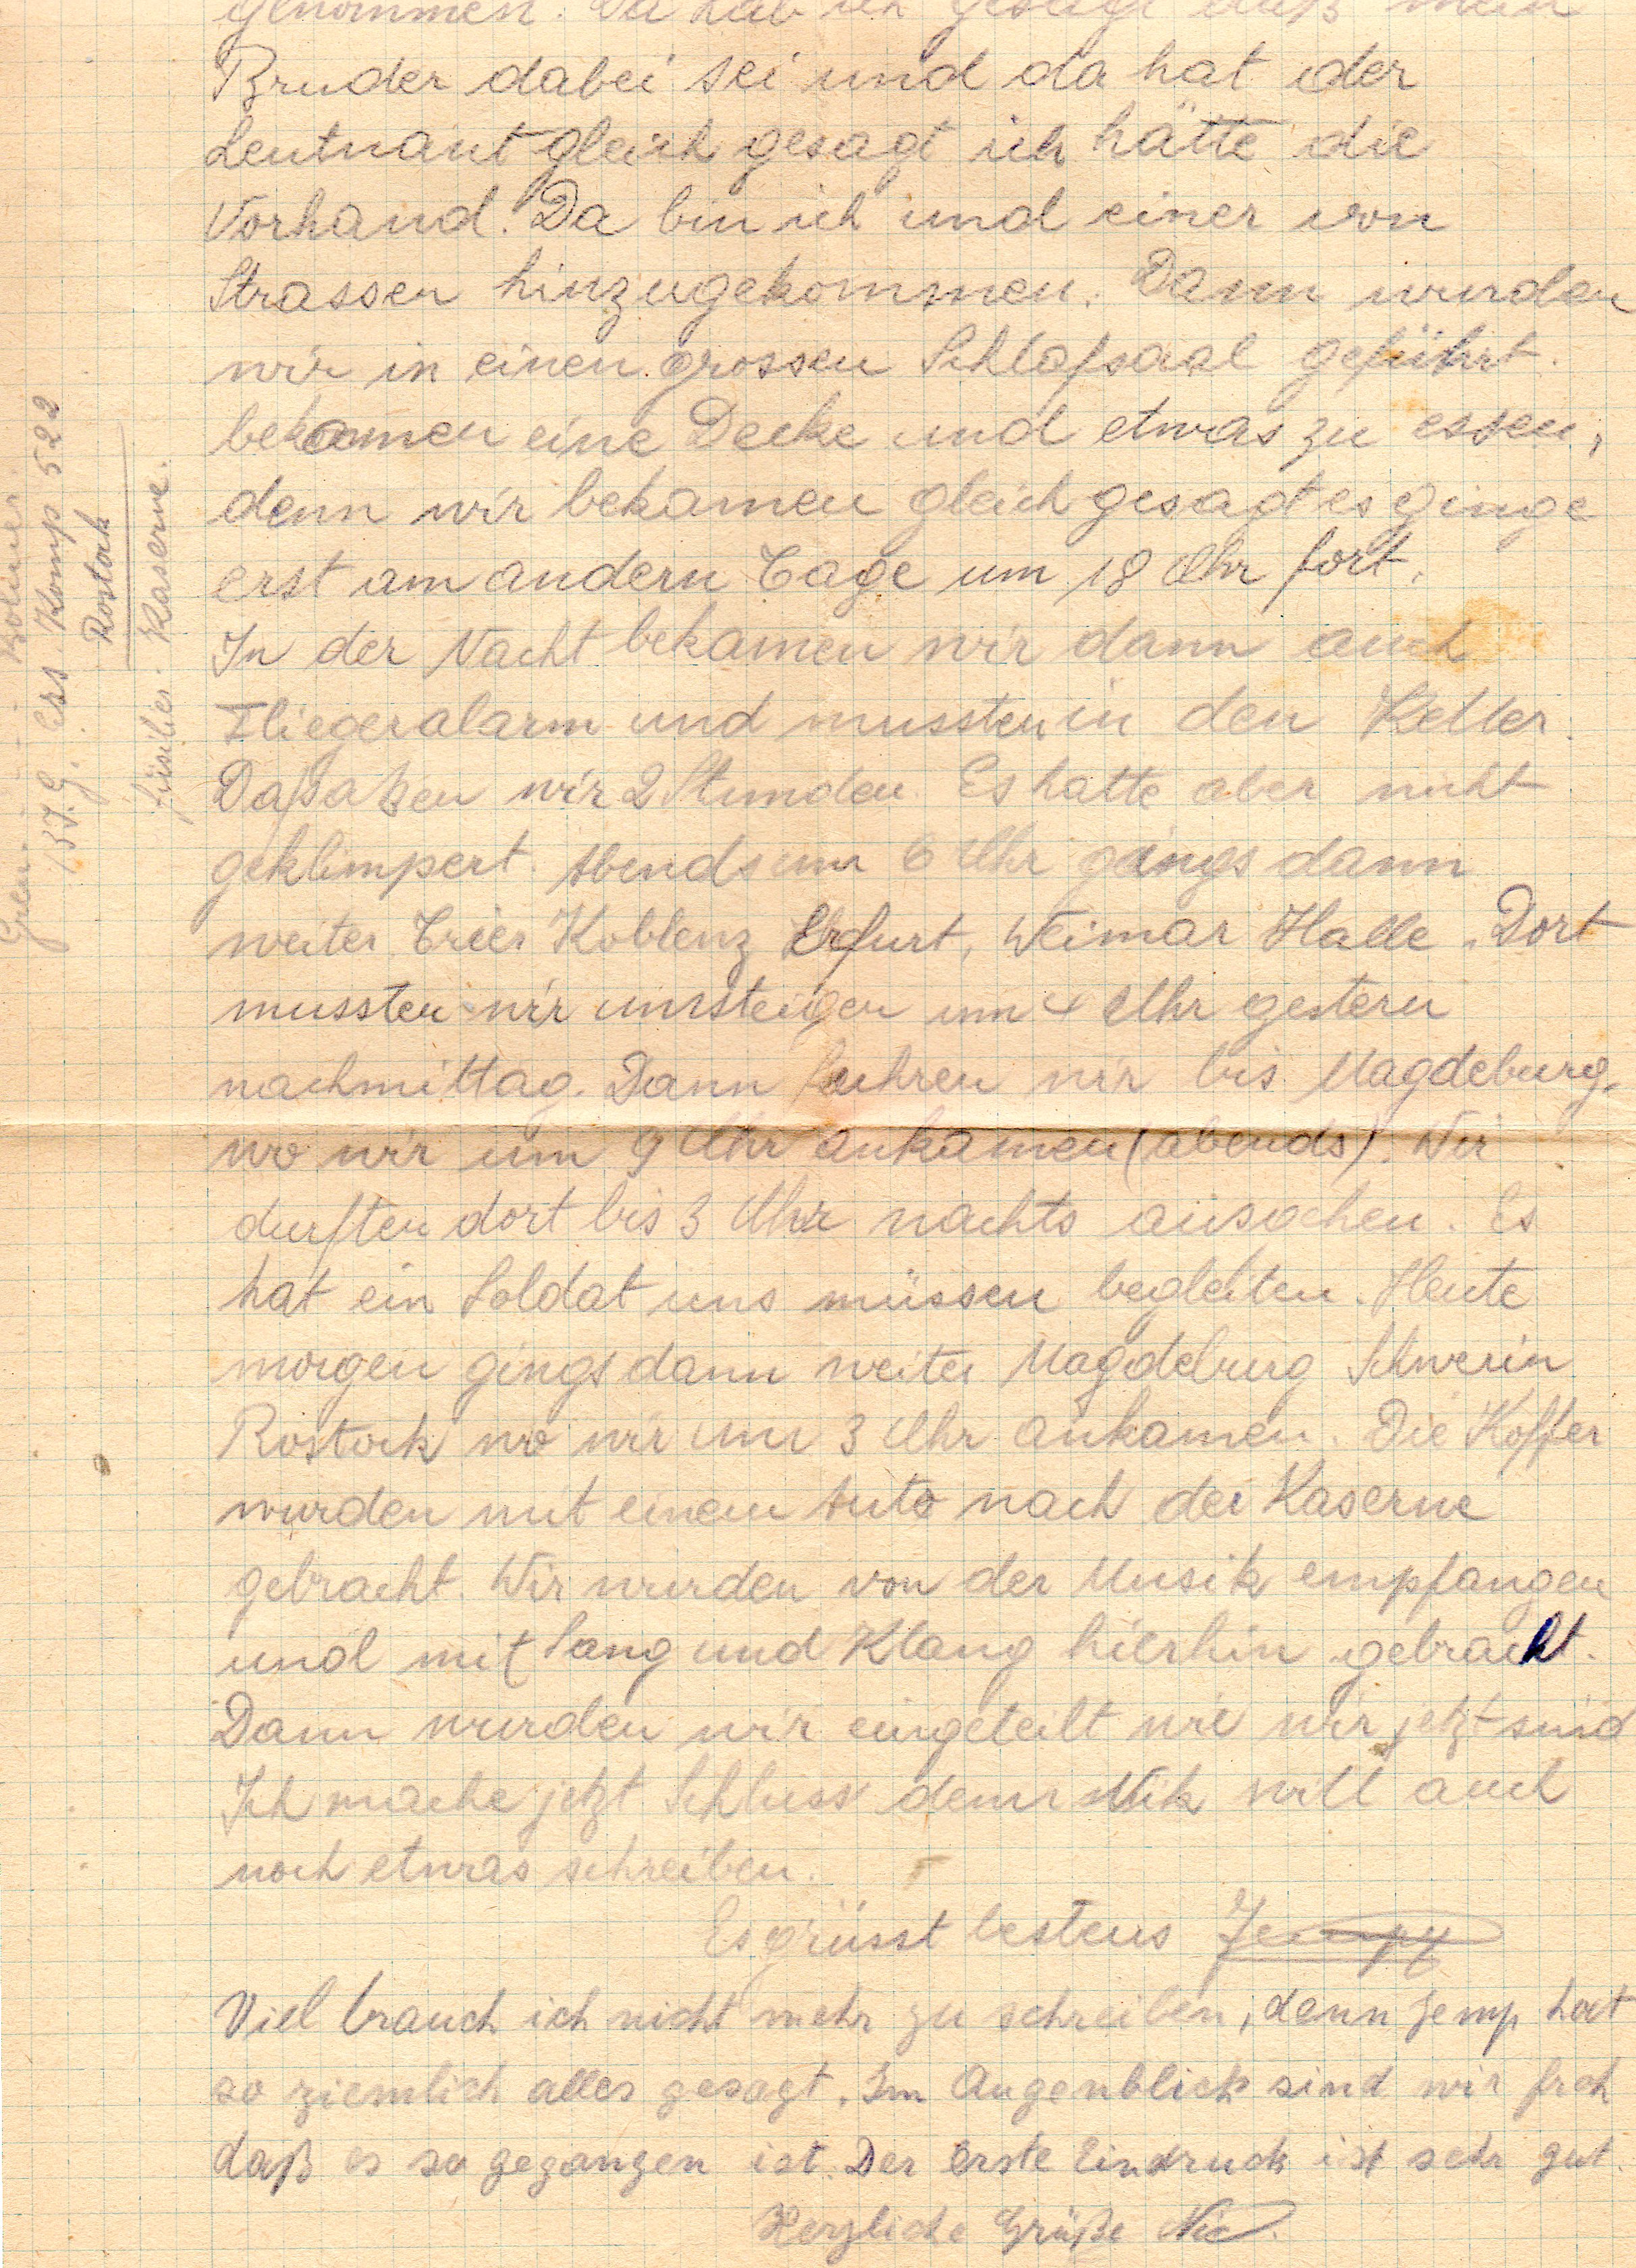 genommen. Da hab ich gesagt daß mein
Bruder dabei sei und da hat der
Leutnant gleich gesagt ich hätte die
Vorhand. Da bin ich und einer von
Strassen hinzugekommen. Dann wurden
wir in einen grossen Schlafsaal geführt.
bekamen eine Decke und etwas zu essen,
denn wir bekamen gleich gesagt es ginge
erst am andern Tage um 18 Uhr fort.
In der Nacht bekamen wir dann auch
Fliegeralarm und mussten in den Keller.
Da saßen wir 2 Stunden. Es hatte aber nicht
geklimpert. Abends um 6 Uhr gings dann
weiter Trier Koblenz Erfurt, Weimar Halle. Dort
mussten wir umsteigen um 4 Uhr gestern
nachmittag. Dann fuhren wir bis Magdeburg.
wo wir um 9 Uhr ankamen (abends). Wir
durften dort bis 3 Uhr nachts ausgehen. Es
hat ein Soldat uns müssen begleiten. Heute
morgen gings dann weiter Magdeburg Schwerin
Rostock wo wir um 3 Uhr ankamen. Die Koffer
wurden mit einem Auto nach der Kaserne
gebracht. Wir wurden von der Musik empfangen
und mit Sang und Klang hierhin gebracht.
Dann wurden wir eingeteilt wie wir jetzt sind
Ich mache jetzt Schluss denn Nik will auch
noch etwas schreiben.
Es grüsst bestens Jempy
Viel brauch ich nicht mehr zu schreiben, denn Jemp hat
so ziemlich alles gesagt. Im Augenblick sind wir froh
daß es so gegangen ist. Der erste Eindruck ist sehr gut.
Herzliche Grüße Nic.
Gren.
J.G. Ers Komp 522
Rostock
Füsilier-Kaserne.